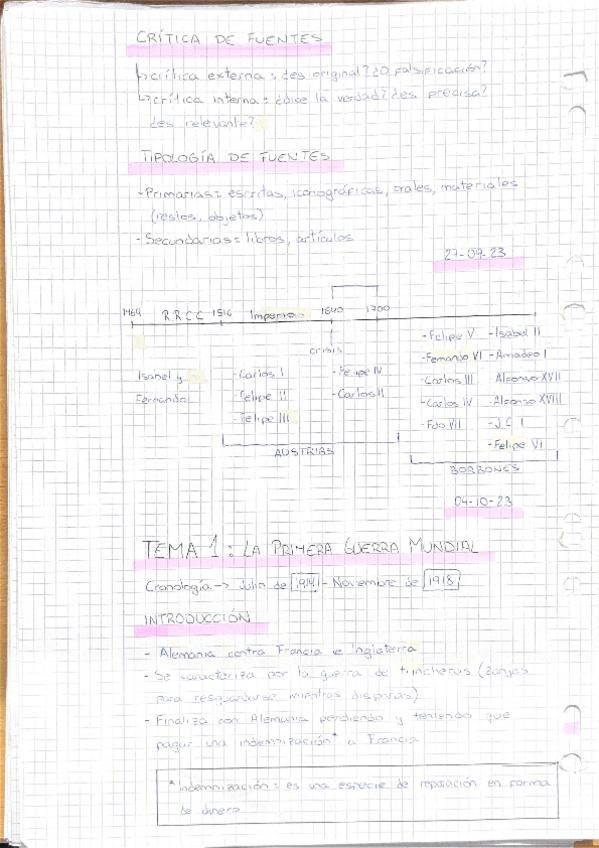 CRÍTICA DE FUENTES
↳crítica externa: ¿es original? ¿O falsificación?
↳crítica interna: ¿dice la verdad? ¿es precisa?
¿es relevante?
TIPOLOGÍA DE FUENTES
-Primarias: escritas, iconográficas, orales, materiales
(restos, objetos)
-Secundarias: libros, artículos
27-09-23
1469 RRCC 1516 Imperio 1640 1700
crisis
Isabel y
Fernando
-Carlos I
-Felipe II
-Felipe III
-Felipe IV
-Carlos II
AUSTRIAS
-Felipe V -Isabel II
-Fernando VI -Amadeo I
-Carlos III Alfonso XVII
-Carlos IV -Alfonso XVIII
-Fdo VII -J.C I
-Felipe VI
BORBONES
04-10-23
TEMA 1: LA PRIMERA GUERRA MUNDIAL
Cronología → Julio de 1914 - Noviembre de 1918
INTRODUCCIÓN
- Alemania contra Francia e Inglaterra
- Se caracteriza por la guerra de trincheras (zanjas
para resguardarse mientras disparas)
- Finaliza con Alemania perdiendo y teniendo que
pagar una indemnización* a Francia
*Indemnización: es una especie de reparación en forma
de dinero